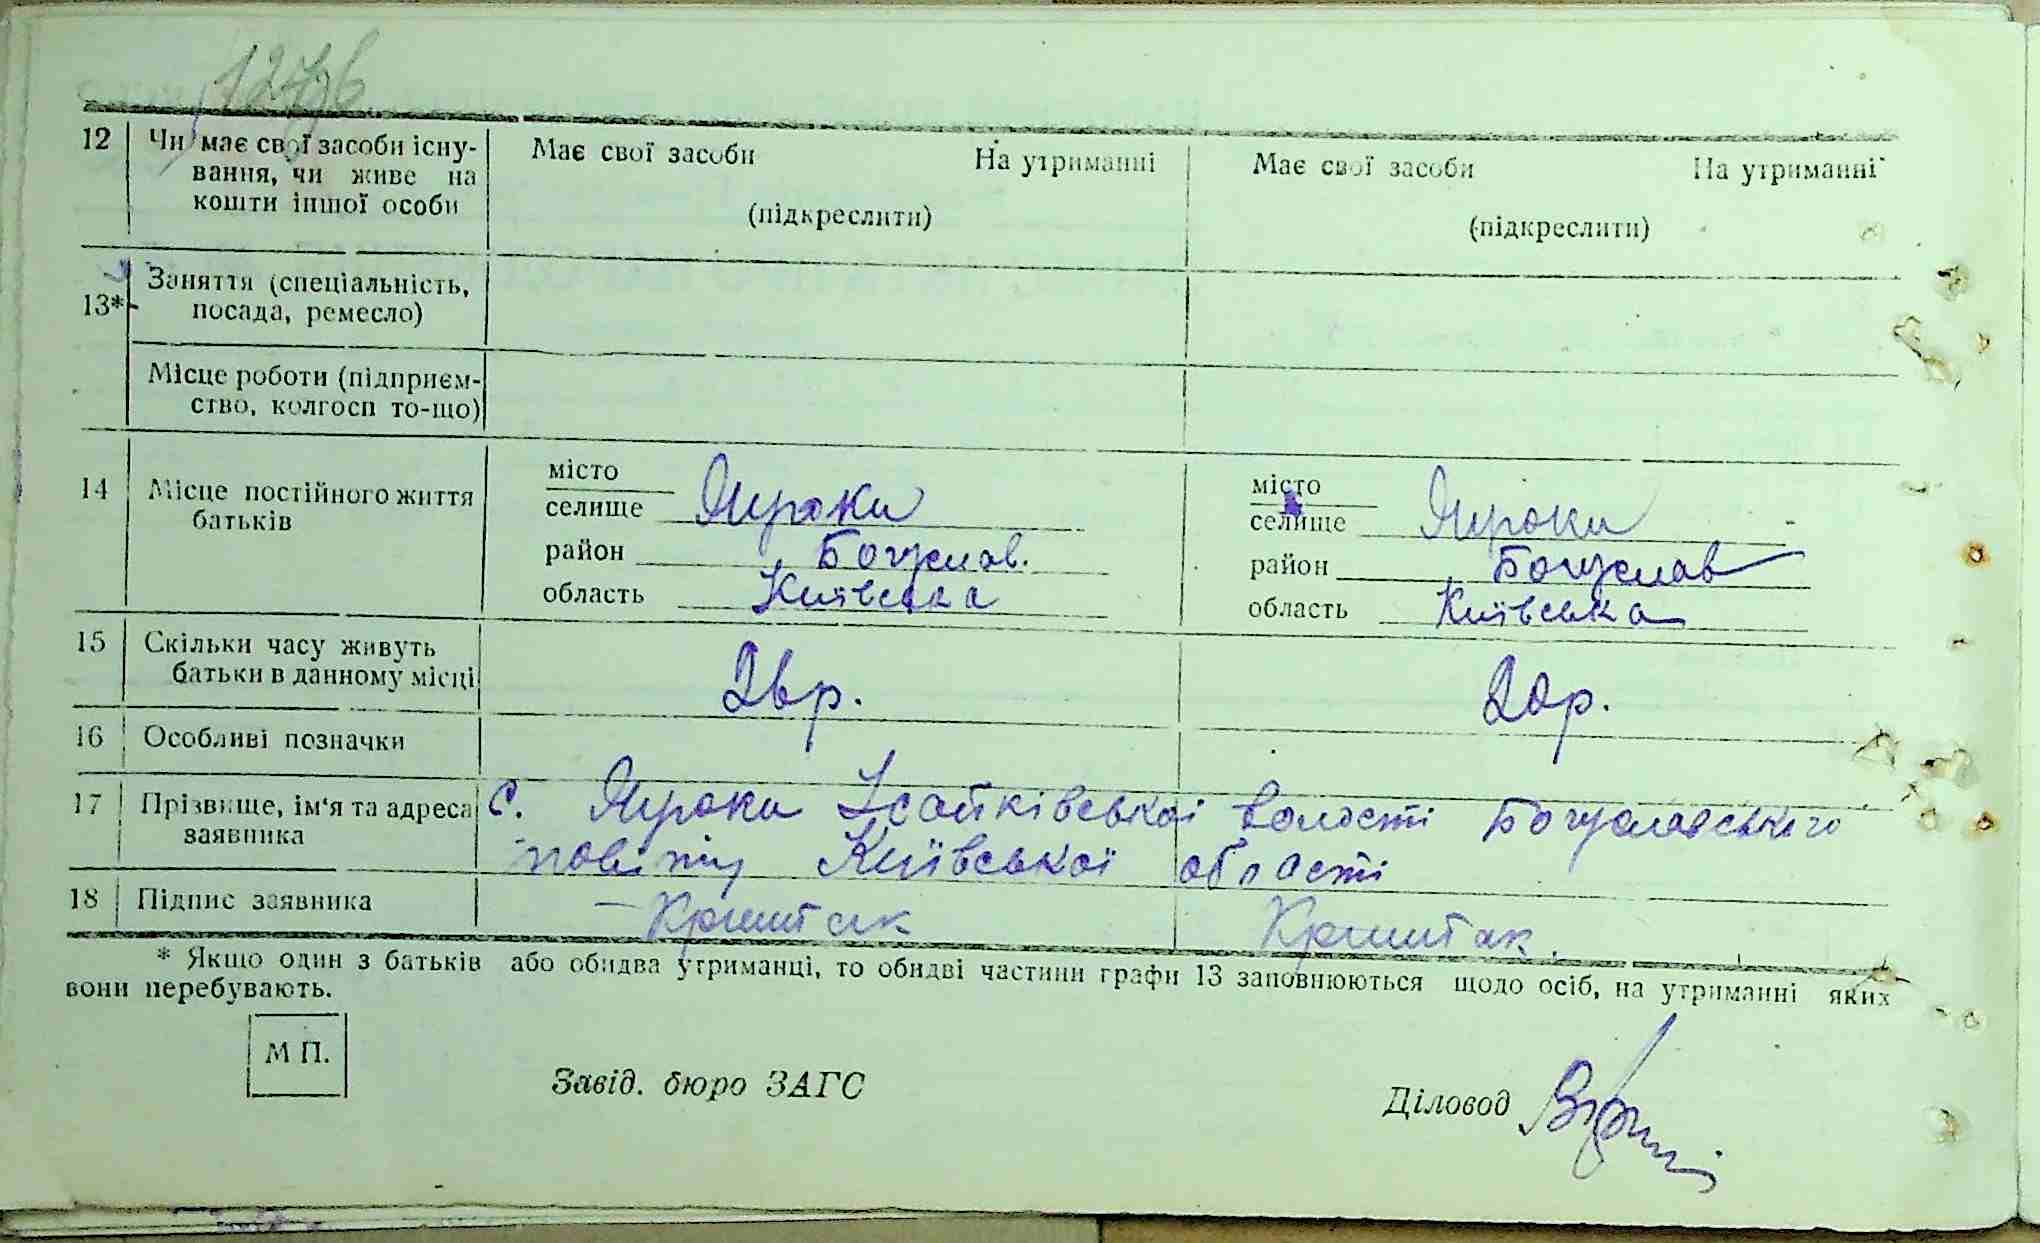 12 Чи має свої засоби існу- Має свої засоби На утриманні Має свої засоби На утриманні
вання, чи живе на
кошти іншої особи (підкреслити) (підкреслити)
Заняття (спеціальність,
13* посада, ремесло)
Місце роботи (підприєм-
ство, колгосп то-що)
14 Місце постійного життя
батьків
місто місто
селище Яцюки селище Яцюки
район Богуслав. район Богуслав
область Київська область Київська
15 Скільки часу живуть
батьки в данному місці 26р. 20р.
16 Особливі позначки
17 Прізвище, ім'я та адреса с. Яцюки Ісайківської волості Богуславського
заявника повіту Київської області
18 Підпис заявника
* Якщо один з батьків або обидва утриманці, то обидві частини графи 13 заповнюються щодо осіб, на утриманні яких
вони перебувають.
М П.
Завід. бюро ЗАГС Діловод